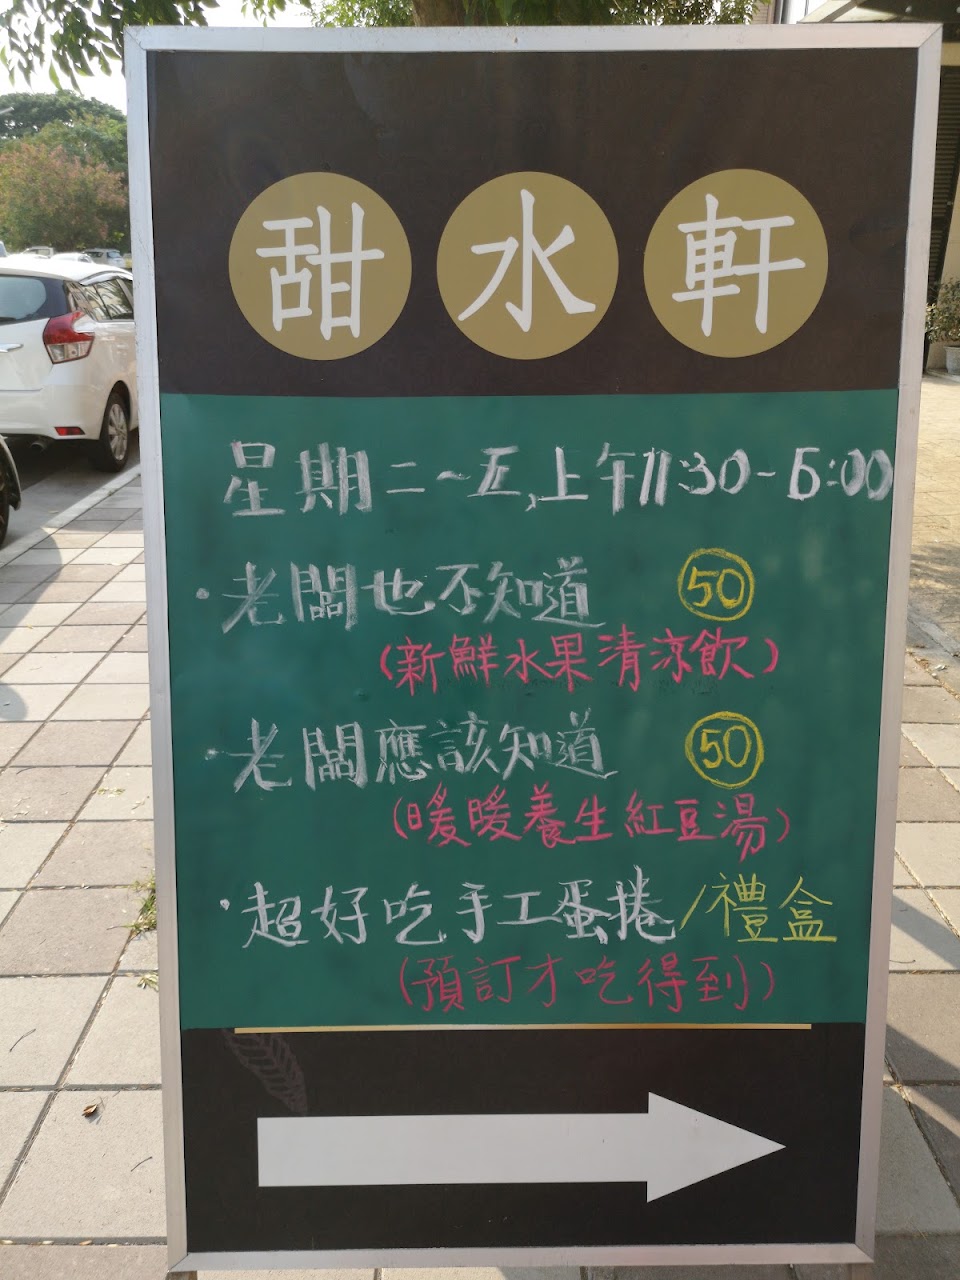 甜水軒
星期二~五,上午11:30-6:00
·老闆也不知道 50
(新鮮水果清涼飲)
·老闆應該知道 50
(暖暖養生紅豆湯)
·超好吃手工蛋捲/禮盒
(預訂才吃得到)